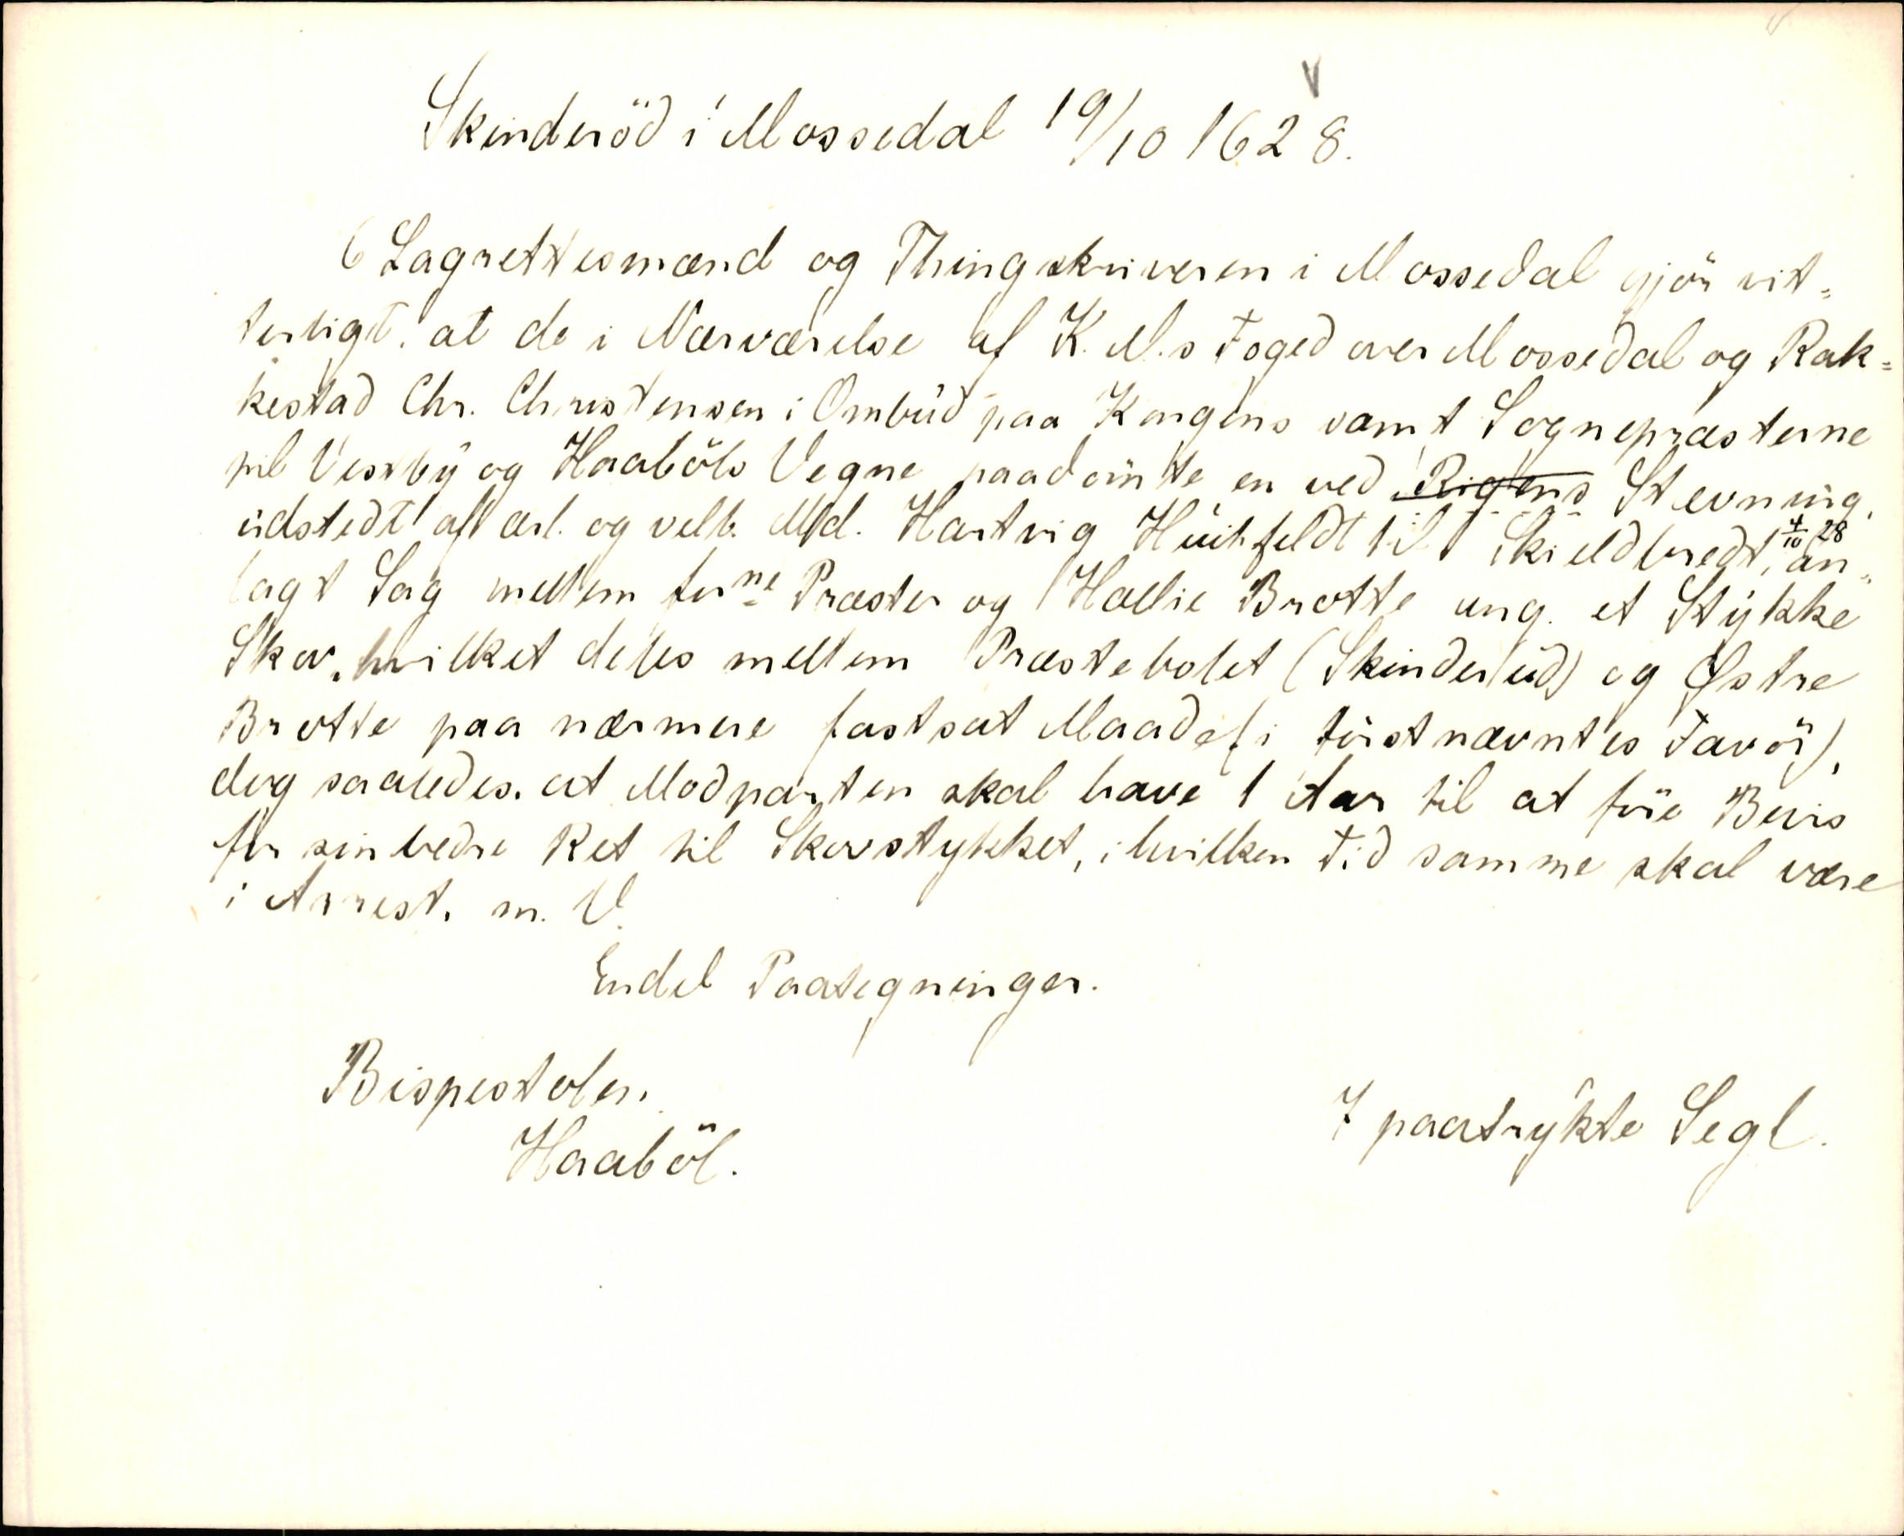 Skinderöd i Mossedal 19/10 1628.
6 Lagrettesmænd og Thingskriveren i Mossedal gjör vit-
terligt, at de i Nærværelse af K. M.s Foged over Mossedal og Rak-
kestad Chr. Christensen i Ombud paa Kongens samt Sognepræsterne
til Vestby og Haaböls Vegne paadömte en ved Rigens Stevning,
udstedt af ærl. og velb. Md. Hartvig Huitfeldt til Skieldbredt, 4/10 28 an-
lagt Sag mellem for^ne Præster og Hellie Brotte ang. et Stykke
Skov, hvilket deles mellem Præstebolet (Skinderud) og Østre
Brotte paa nærmere fastsat Maade (i förstnævntes Favör),
dog saaledes, at Modparten skal have 1 Aar til at före Bevis
for sin bedre Ret til Skovstykket, i hvilken Tid samme skal være
i Arrest. m. V.
Endel Paategninger.
Bispestolen.
Haaböl.
7 paatrykte Segl.